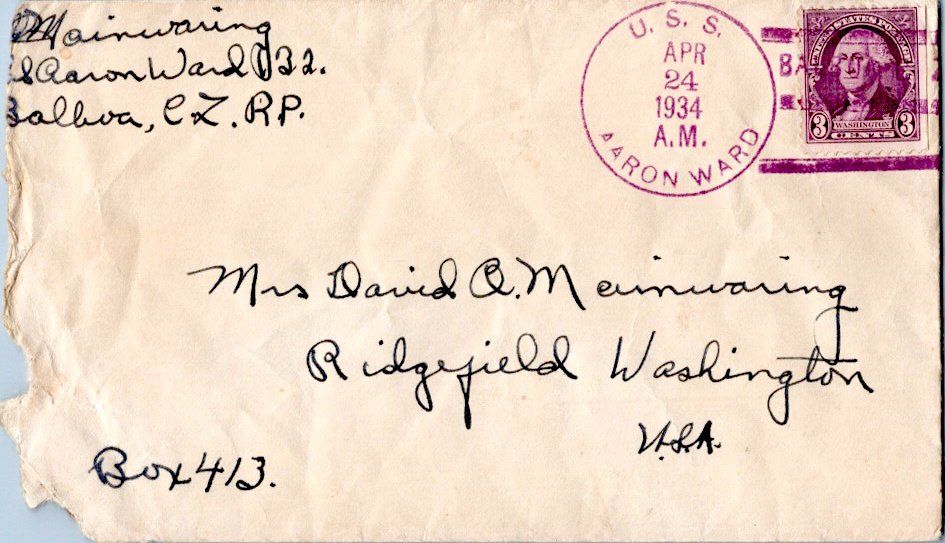 Mainwaring
S Aaron Ward 132.
Balboa, C.Z. R.P.
U. S. S.
APR
24
1934
A.M.
AARON WARD
BA
UNITED STATES POSTAGE
WASHINGTON
3 CENTS 3
Mrs David A. Mainwaring
Ridgefield Washington
U.S.A.
Box 413.